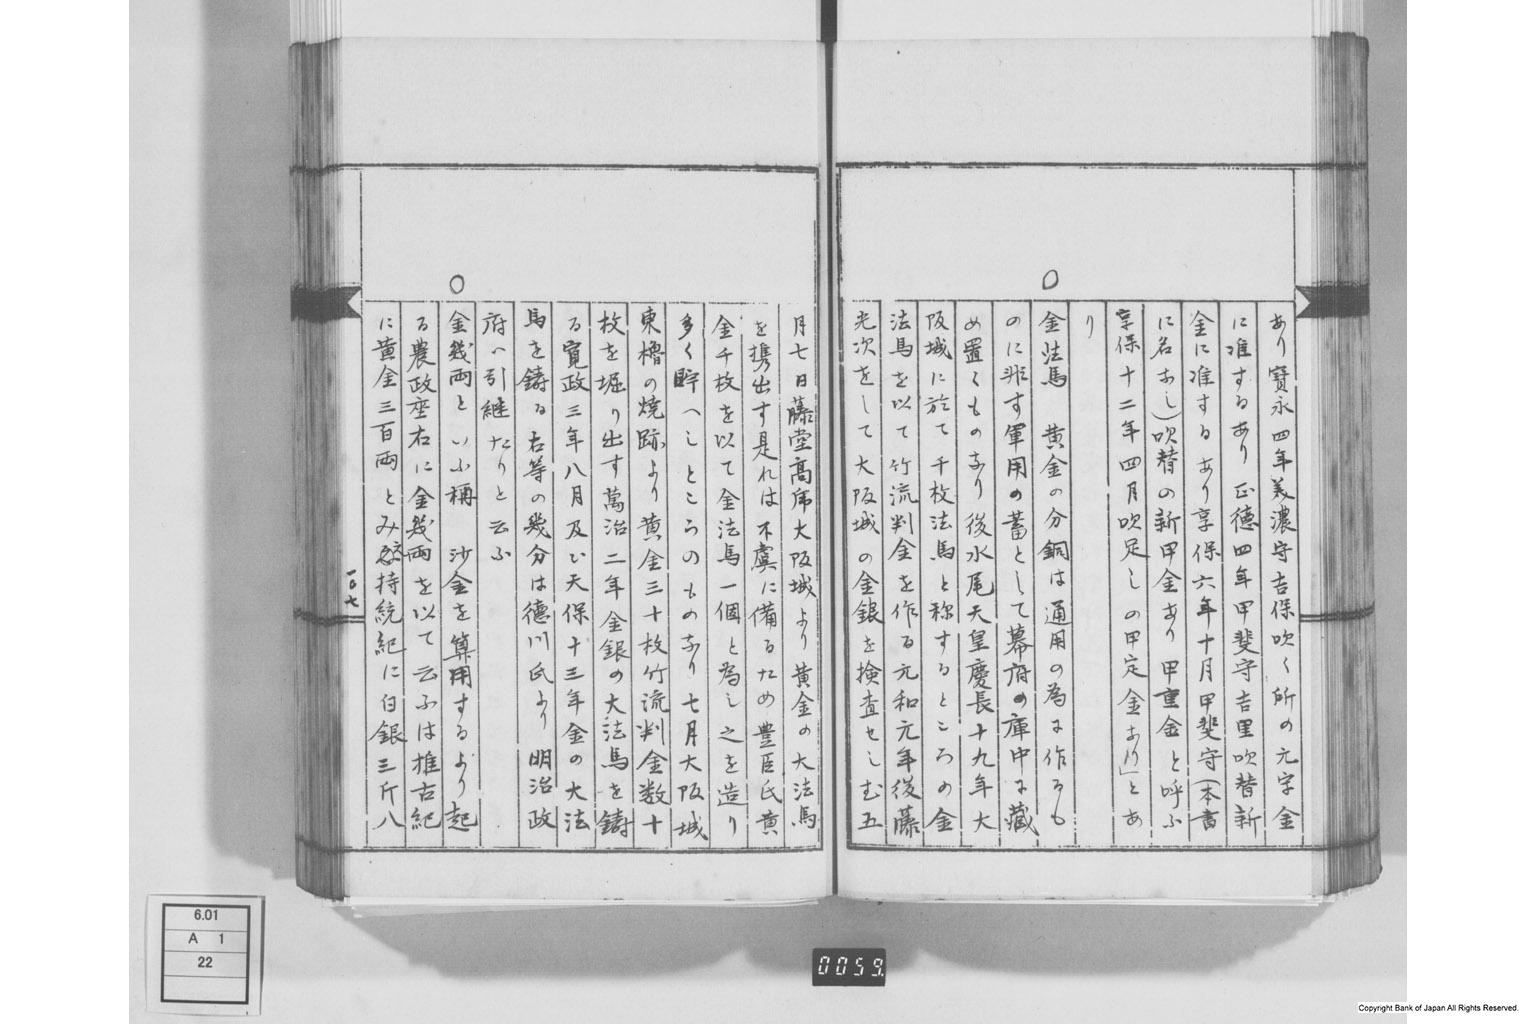 あり寶永四年美濃守吉保吹く所の元字金
に准するあり正德四年甲斐守吉里吹替新
金に准するあり享保六年十月甲斐守（本書
に名なし）吹替の新甲金あり甲重金と呼ふ
享保十二年四月吹足しの甲定金あり」とあ
り
○
金法馬　黄金の分銅は通用の為に作るも
のに非す軍用の蓄として幕府の庫中に藏
め置くものなり後水尾天皇慶長十九年大
阪城に於て千枚法馬と称するところの金
法馬を以て竹流判金を作る元和元年後藤
光次をして大阪城の金銀を検査せしむ五
月七日藤堂高虎大阪城より黄金の大法馬
を携出す是れは不虞に備るため豊臣氏黄
金千枚を以て金法馬一個と為し之を造り
多く貯へしところのものなり七月大阪城
東櫓の焼跡より黄金三十枚竹流判金数十
枚を堀り出す萬治二年金銀の大法馬を鑄
る寛政三年八月及ひ天保十三年金の大法
馬を鑄る右等の幾分は德川氏より明治政
府へ引継たりと云ふ
○
金幾両といふ稱　沙金を算用するより起
る農政座右に金幾両を以て云ふは推古紀
に黄金三百両とみ　持統紀に白銀三斤八
一〇七
6.01
A 1
22
0059
Copyright Bank of Japan All Rights Reserved.